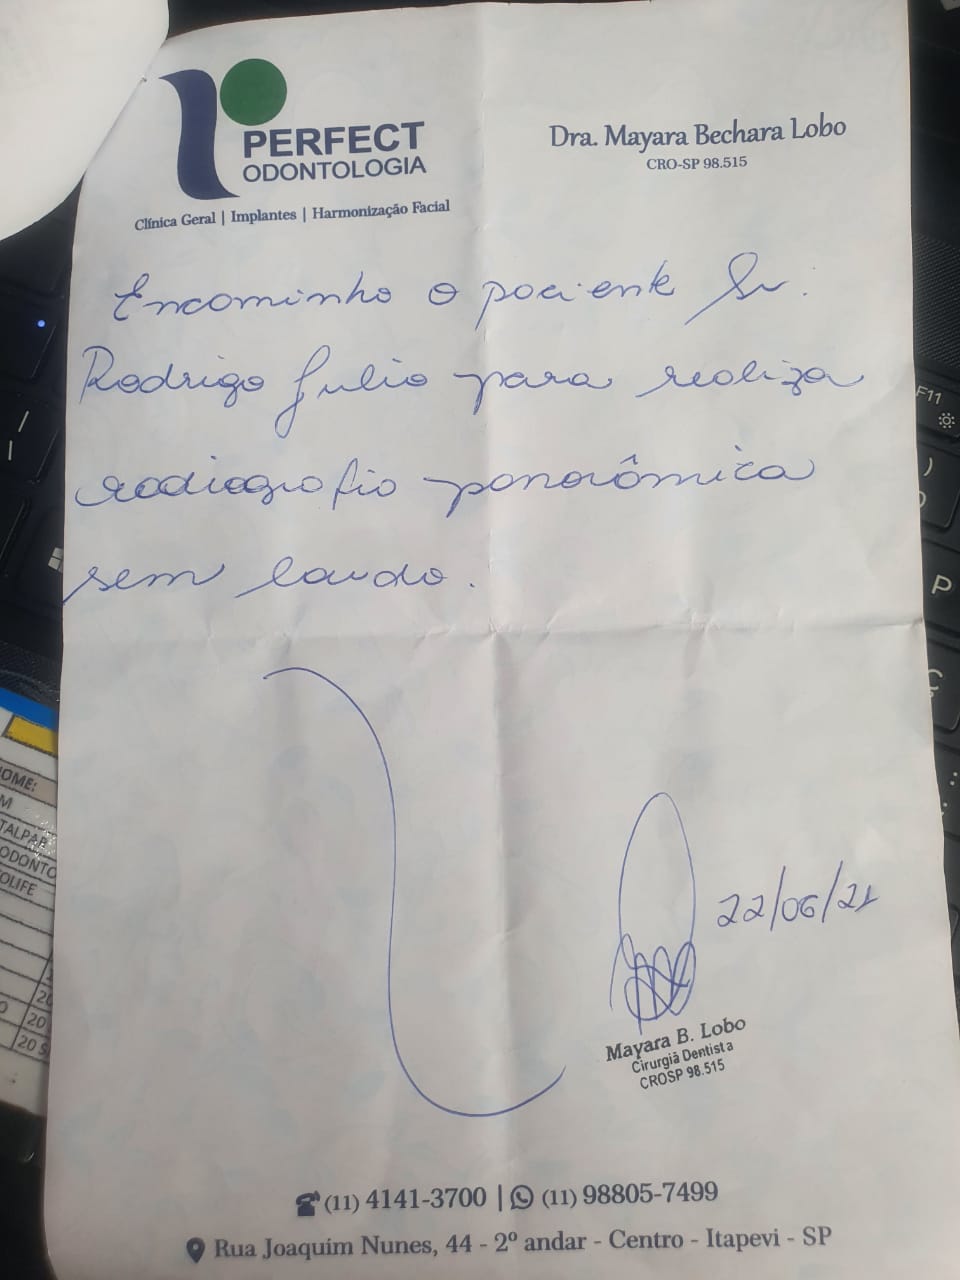 PERFECT
ODONTOLOGIA
Clínica Geral | Implantes | Harmonização Facial
Dra. Mayara Bechara Lobo
CRO-SP 98.515
Encaminho o paciente Sr.
Rodrigo Julio para realiza
radiografia panorâmica
sem laudo.
22/06/21
Mayara B. Lobo
Cirurgiã Dentista
CROSP 98.515
(11) 4141-3700 | (11) 98805-7499
Rua Joaquim Nunes, 44 - 2º andar - Centro - Itapevi - SP
F11
P
Ç
OME:
M
TALPAR
ODONTO
OLIFE
20
20
20 S